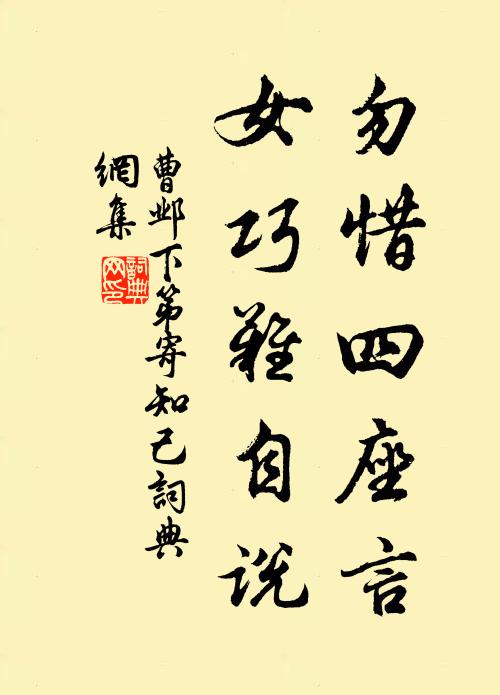 勿惜四座言
女巧難自説
曹邺下第寄知己詞典
網集
詞典網印